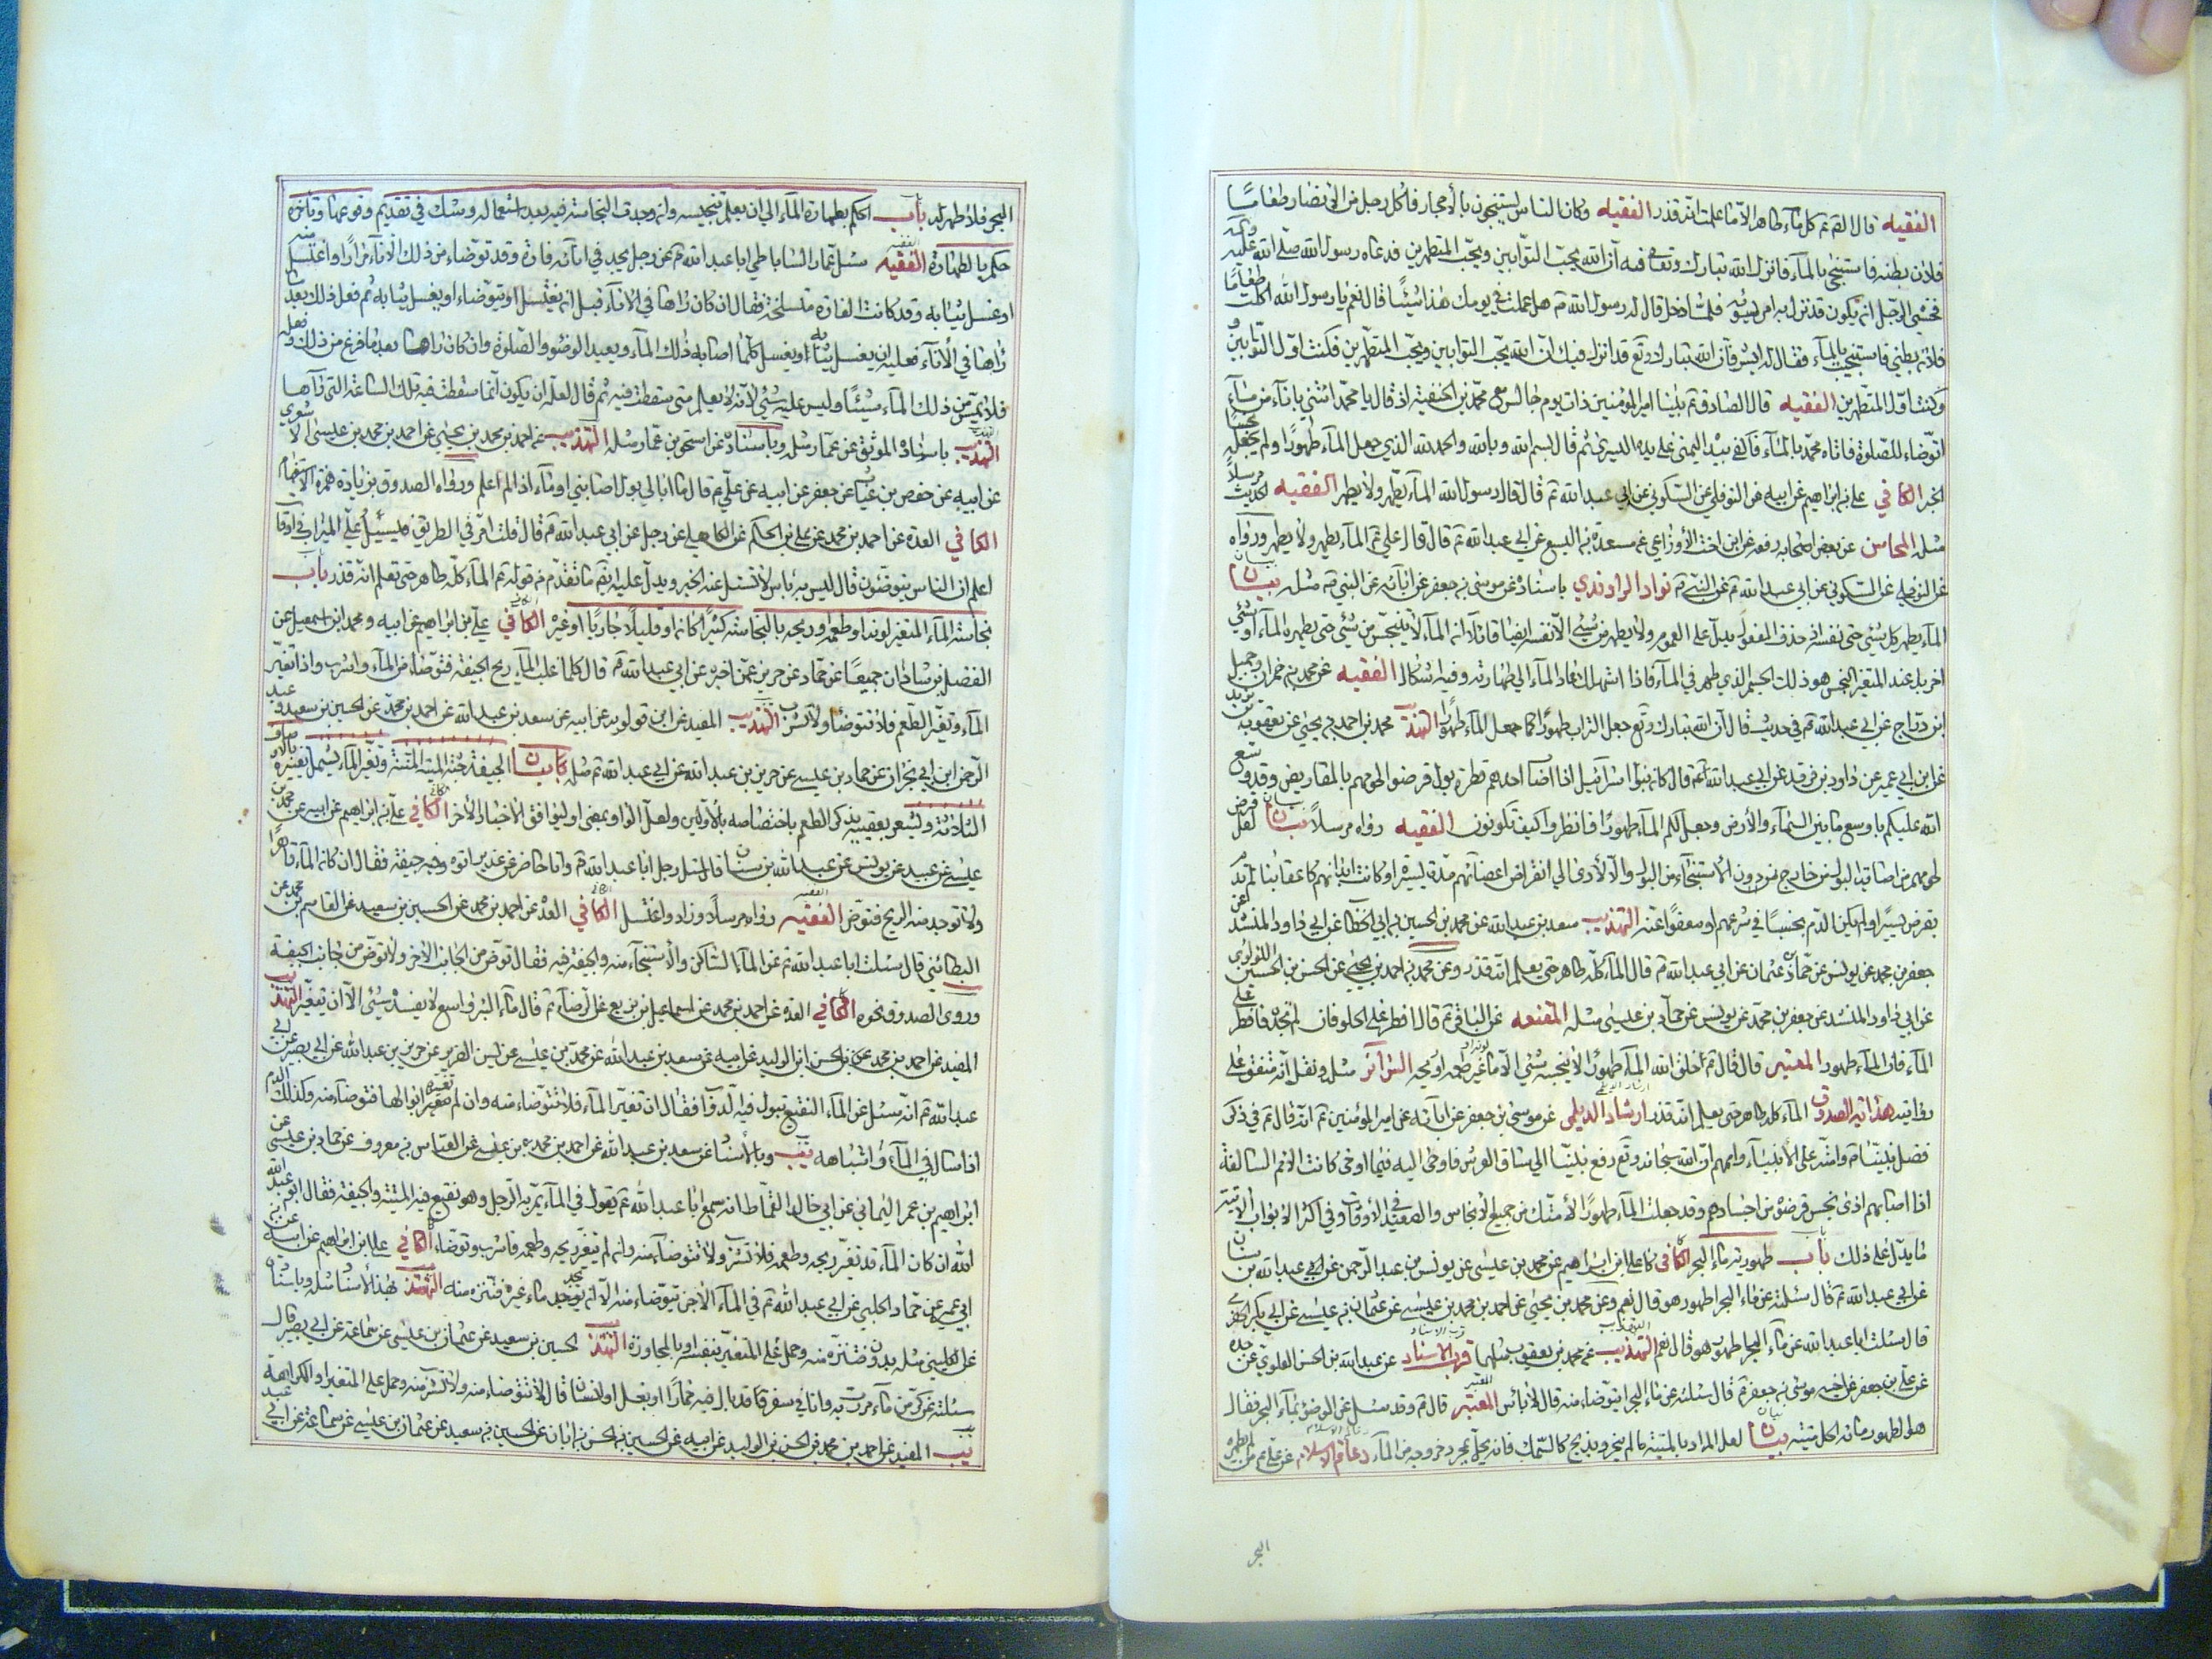 الفقيه قال الصم كل ماء طاهر الا ما علمت انه قذر الفقيه وكان الناس يستنجون بالأحجار فاكل رجل من الانصار طعاما
فلان بطنه فاستنجى بالماء فانزل الله تبارك وتعالى فيه ان الله يحب التوابين ويحب المتطهرين فدعاه رسول الله صلى الله عليه
فخشي الرجل ان يكون قد نزل به امر يسوؤه فلما دخل قال له رسول الله هل عملت في يومك هذا شيئا قال نعم يا رسول الله اكلت طعاما
فلان بطني فاستنجيت بالماء فقال له ابشر فان الله تبارك وتع قد انزل فيك ان الله يحب التوابين ويحب المتطهرين فكنت اول التوابين
وكنت اول المتطهرين الفقيه قال الصادق بينا امير المؤمنين ذات يوم جالس مع محمد بن الحنفية اذ قال يا محمد ائتني باناء من ماء
اتوضاء للصلوة فاتاه محمد بالماء فاكفى بيده اليمنى على يده اليسرى ثم قال بسم الله وبالله والحمد لله الذي جعل الماء طهورا ولم يجعله نجسا
الخبر الكافي علي بن ابراهيم عن ابيه عن النوفلي عن السكوني عن ابي عبد الله قال قال رسول الله الماء يطهر ولا يطهر الفقيه مرسلا
مثله المحاسن عن بعض اصحابه رفعه عن ابن اخت الأوزاعي عن مسعدة بن اليسع عن ابي عبد الله قال قال علي الماء يطهر ولا يطهر ورواه
عن النوفلي عن السكوني عن ابي عبد الله عن النبي نوادر الراوندي باسناده عن موسى بن جعفر عن ابائه عن النبي مثله بيان
الماء يطهر كل شيء حتى نفسه اذ حذف المفعول يدل على العموم ولا يطهر من شيء الا نفسه ايضا فافاد ان الماء لا يتنجس من شيء حتى يطهره الماء او شيء
اخر بل عند المتغير النجس هو ذلك الجسم الذي ظهر في الماء فاذا استهلك عاد الماء الى طهارته وفيه اشكال الفقيه عن محمد بن حمران وجميل
ابن دراج عن ابي عبد الله في حديث قال ان الله تبارك وتع جعل التراب طهورا كما جعل الماء طهورا التهذيب محمد بن احمد بن يحيى عن يعقوب بن يزيد
عن ابن ابي عمير عن داود بن فرقد عن ابي عبد الله قال كان بنو اسرائيل اذا اصاب احدهم قطرة بول قرضوا لحومهم بالمقاريض وقد وسع
الله عليكم باوسع ما بين السماء والأرض وجعل لكم الماء طهورا فانظروا كيف تكونون الفقيه رواه مرسلا بيان لعل قرض
لحومهم من اصابة البول من خارج دون الاستنجاء من البول والا لأدى الى انقراض اعضائهم مدة يسيرة او كانت ابدانهم كاعقابنا لم تدم
بقرض يسير او لم يكن الدم نجسا في شرعهم او معفوا عنه التهذيب سعد بن عبد الله عن محمد بن الحسين بن ابي الخطاب عن ابي داود المنشد عن
جعفر بن محمد عن يونس عن حماد بن عثمان عن ابي عبد الله قال الماء كله طاهر حتى يعلم انه قذر وعن محمد بن احمد بن يحيى عن الحسن بن الحسين اللؤلؤي
عن ابي داود المنشد عن جعفر بن محمد عن يونس عن حماد بن عيسى مثله المقنعه عن الباقر قال افطر على الحلو فان لم تجده فافطر على
الماء فان الماء طهور المعتبر قال قال خلق الله الماء طهورا لا ينجسه شيء الا ما غير لونه او طعمه او ريحه السرائر مثله ونقل انه متفق على
روايته هداية الصدوق الماء كله طاهر حتى يعلم انه قذر ارشاد الديلمي عن موسى بن جعفر عن ابائه عن امير المؤمنين انه قال في ذكر
فضل نبينا وامته على الأنبياء واممهم ان الله سبحانه وتع رفع نبينا الى ساق العرش فاوحى اليه فيما اوحى كانت الامم السالفة
اذا اصابهم اذى نجس قرضوه من اجسادهم وقد جعلت الماء طهورا لأمتك من جميع الأنجاس والصعيد في الأوقات وفي اكثر الابواب الاتية
ما يدل على ذلك باب طهورية ماء البحر الكافي علي ابن ابراهيم عن محمد بن عيسى عن يونس بن عبد الرحمن عن عبد الله بن سنان
عن ابي عبد الله قال سئلته عن ماء البحر اطهور هو قال نعم وعن محمد بن يحيى عن احمد بن محمد بن عيسى عن عثمان بن عيسى عن ابي بكر الحضرمي
قال سئلت ابا عبد الله عن ماء البحر اطهور هو قال نعم التهذيب عن محمد بن يعقوب مثلهما قرب الاسناد عن عبد الله بن الحسن العلوي عن جده
عن علي بن جعفر عن اخيه موسى بن جعفر قال سئلته عن ماء البحر ايتوضاء منه قال لا بأس المعتبر قال وقد سئل عن الوضوء بماء البحر فقال
هو الطهور ماؤه الحل ميتته بيان لعل المراد بالميتة ما لم ينحر ويذبح كالسمك فانه يحل بمجرد خروجه من الماء دعائم الاسلام عن علي من لم يطهره
البحر
البحر فلا طهر له باب الحكم بطهارة الماء الى ان يعلم تنجيسه وان وجدت النجاسة فيه بعد استعماله وشك في تقديم وقوعها وتأخره
حكم بالطهارة الفقيه سئل عمار الساباطي ابا عبد الله عن رجل يجد في انائه فارة وقد توضاء من ذلك الاناء مرارا واغتسل منه
او غسل ثيابه وقد كانت الفارة متسلخة فقال ان كان راها في الاناء قبل ان يغتسل او يتوضاء او يغسل ثيابه ثم فعل ذلك بعد ما
راها في الأناء فعليه ان يغسل ثيابه ويغسل كلما اصابه ذلك الماء ويعيد الوضوء والصلوة وان كان راها بعد ما فرغ من ذلك وفعله
فلا يمس من ذلك الماء شيئا وليس عليه شيء لأنه لا يعلم متى سقطت فيه ثم قال لعله ان يكون انما سقطت فيه تلك الساعة التي راها
التهذيب باسناده الموثق عن عمار مثله وباسناده عن اسحق بن عمار مثله التهذيب عن احمد بن محمد بن يحيى عن احمد بن محمد بن عيسى الاشعري
عن ابيه عن حفص بن غياث عن جعفر عن ابيه عن علي قال ما ابالي بول اصابني او ماء اذا لم اعلم ورواه الصدوق بزيادة همزة الاستفهام
الكافي العدة عن احمد بن محمد عن علي بن الحكم عن الكاهلي عن رجل عن ابي عبد الله قال قلت امر في الطريق فيسيل علي الميزاب في اوقات
اعلم ان الناس يتوضئون قال ليس به بأس لا تسئل عنه الخبر ويدل عليه ما تقدم من قوله الماء كله طاهر حتى تعلم انه قذر باب
نجاسة الماء المتغير لونه او طعمه او ريحه بالنجاسة كثيرا كان او قليلا جاريا او غيره الكافي علي بن ابراهيم عن ابيه ومحمد ابن اسمعيل عن
الفضل بن شاذان جميعا عن حماد عن حريز عمن اخبره عن ابي عبد الله قال كلما غلب الماء ريح الجيفة فتوضاء من الماء واشرب واذا تغير
الماء وتغير الطعم فلا تتوضأ ولا تشرب التهذيب المفيد عن ابن قولويه عن ابيه عن سعد بن عبد الله عن احمد بن محمد عن الحسين بن سعيد وعبد
الرحمن ابن ابي نجران عن حماد بن عيسى عن حريز بن عبد الله عن ابي عبد الله مثله بيان الجيفة جثة الميتة المنتنة وتغير الماء يشمل تغيره باوصافه
الثلاثة ويشعر تعقيبه بذكر الطعم باختصاصه بالأولين ولعل الواو بمعنى او ليوافق الأخبار الأخر الكافي علي بن ابراهيم عن ابيه عن محمد بن
عيسى عن عبيد عن يونس عن عبد الله بن سنان قال سئل رجل ابا عبد الله وانا حاضر عن غدير اتوه وفيه جيفة فقال ان كان الماء قاهرا
ولا توجد منه الريح فتوضأ الفقيه رواه مرسلا وزاد واغتسل الكافي العدة عن احمد بن محمد عن الحسين بن سعيد عن القاسم بن محمد عن
البطائني قال سئلت ابا عبد الله عن الماء الساكن والأستنجاء منه والجيفة فيه فقال توض من الجانب الاخر ولا توض من جانب الجيفة
وروى الصدوق نحوه الكافي العدة عن احمد بن محمد عن اسماعيل بن بزيع عن الرضا قال ماء البئر واسع لا يفسده شيء الا ان يتغير التهذيب
المفيد عن احمد بن محمد بن الحسن ابن الوليد عن ابيه عن سعد بن عبد الله عن محمد بن عيسى عن يس الضرير عن حريز بن عبد الله عن ابي بصير عن ابي
عبد الله انه سئل عن الماء النقيع تبول فيه الدواب فقال ان تغير الماء فلا تتوضاء منه وان لم تغيره ابوالها فتوضاء منه وكذلك الدم
اذا سال في الماء واشباهه يب وبالأسناد عن سعد بن عبد الله عن احمد بن محمد بن عيسى عن العباس بن معروف عن حماد بن عيسى عن
ابراهيم بن عمر اليماني عن ابي خالد القماط انه سمع ابا عبد الله يقول في الماء يمر به الرجل وهو نقيع فيه الميتة والجيفة فقال ابو عبد
الله ان كان الماء قد تغير ريحه وطعمه فلا تشرب ولا تتوضاء منه وان لم يتغير ريحه وطعمه فاشرب وتوضاء الكافي علي ابن ابراهيم عن ابيه عن ابن
ابي عمير عن حماد الحلبي عن ابي عبد الله في الماء الآجن يتوضاء منه الا ان توجد ماء غيره فتنزه منه التهذيب بهذا الأسناد مثله وباسناده
عن الكليني مثله بدون فتنزه منه وحمل على المتغير بنفسه او بالمجاورة التهذيب الحسين بن سعيد عن عثمان بن عيسى عن سماعة عن ابي بصير قال
سئلته عن كر من ماء مررت به وانا في سفر قد بال فيه حمار او بغل او انسان قال لا تتوضاء منه ولا تشرب منه وحمل على المتغير او الكراهة
يب المفيد عن احمد بن محمد بن الحسن بن الوليد عن ابيه عن الحسين بن الحسن بن ابان عن الحسين بن سعيد عن عثمان بن عيسى عن سماعة عن ابي عبد